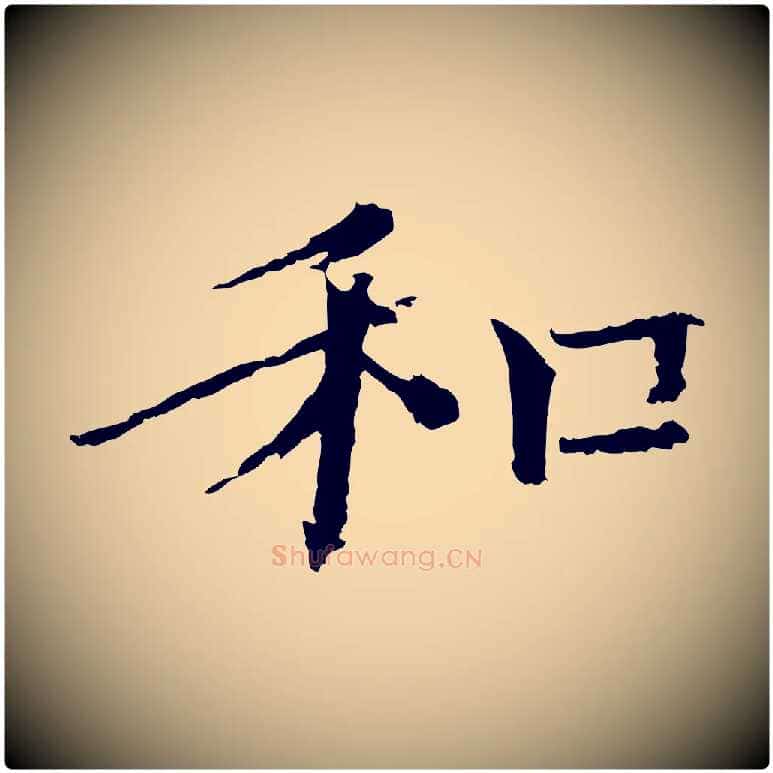 和
Shufawang.CN